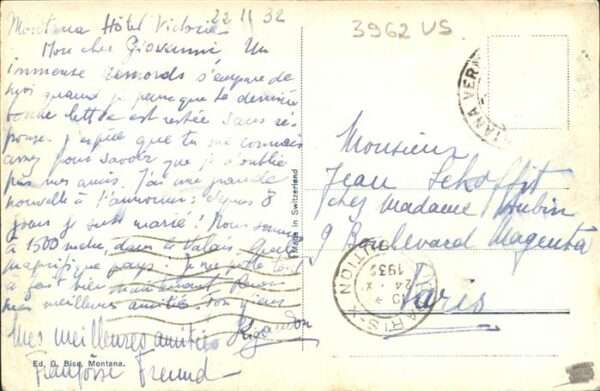 Montana Hôtel Victoria 22 11 32
Mon cher Giovanni Un
immense remords s'empare de
moi quand je pense que ta dernière
bonne lettre est restée sans ré-
ponse. J'espère que tu me connais
assez pour savoir que je n'oublie
pas mes amis. J'ai une grande
nouvelle à t'annoncer: depuis 8
jours je suis marié! Nous sommes
à 1500 mètres, dans le Valais. Quel
magnifique pays!
à fait bien maintenant
mes meilleures amitiés, ton vieux
Mes meilleures amitiés
Françoise Freund
Ed. D. Bico, Montana.
Made in Switzerland
3962 VS
MONTANA VER
Monsieur
Jean
chez Madame Aubin
9 Boulevard Magenta
Paris
PARIS X
DISTRIBUTION
10
24 - X
193